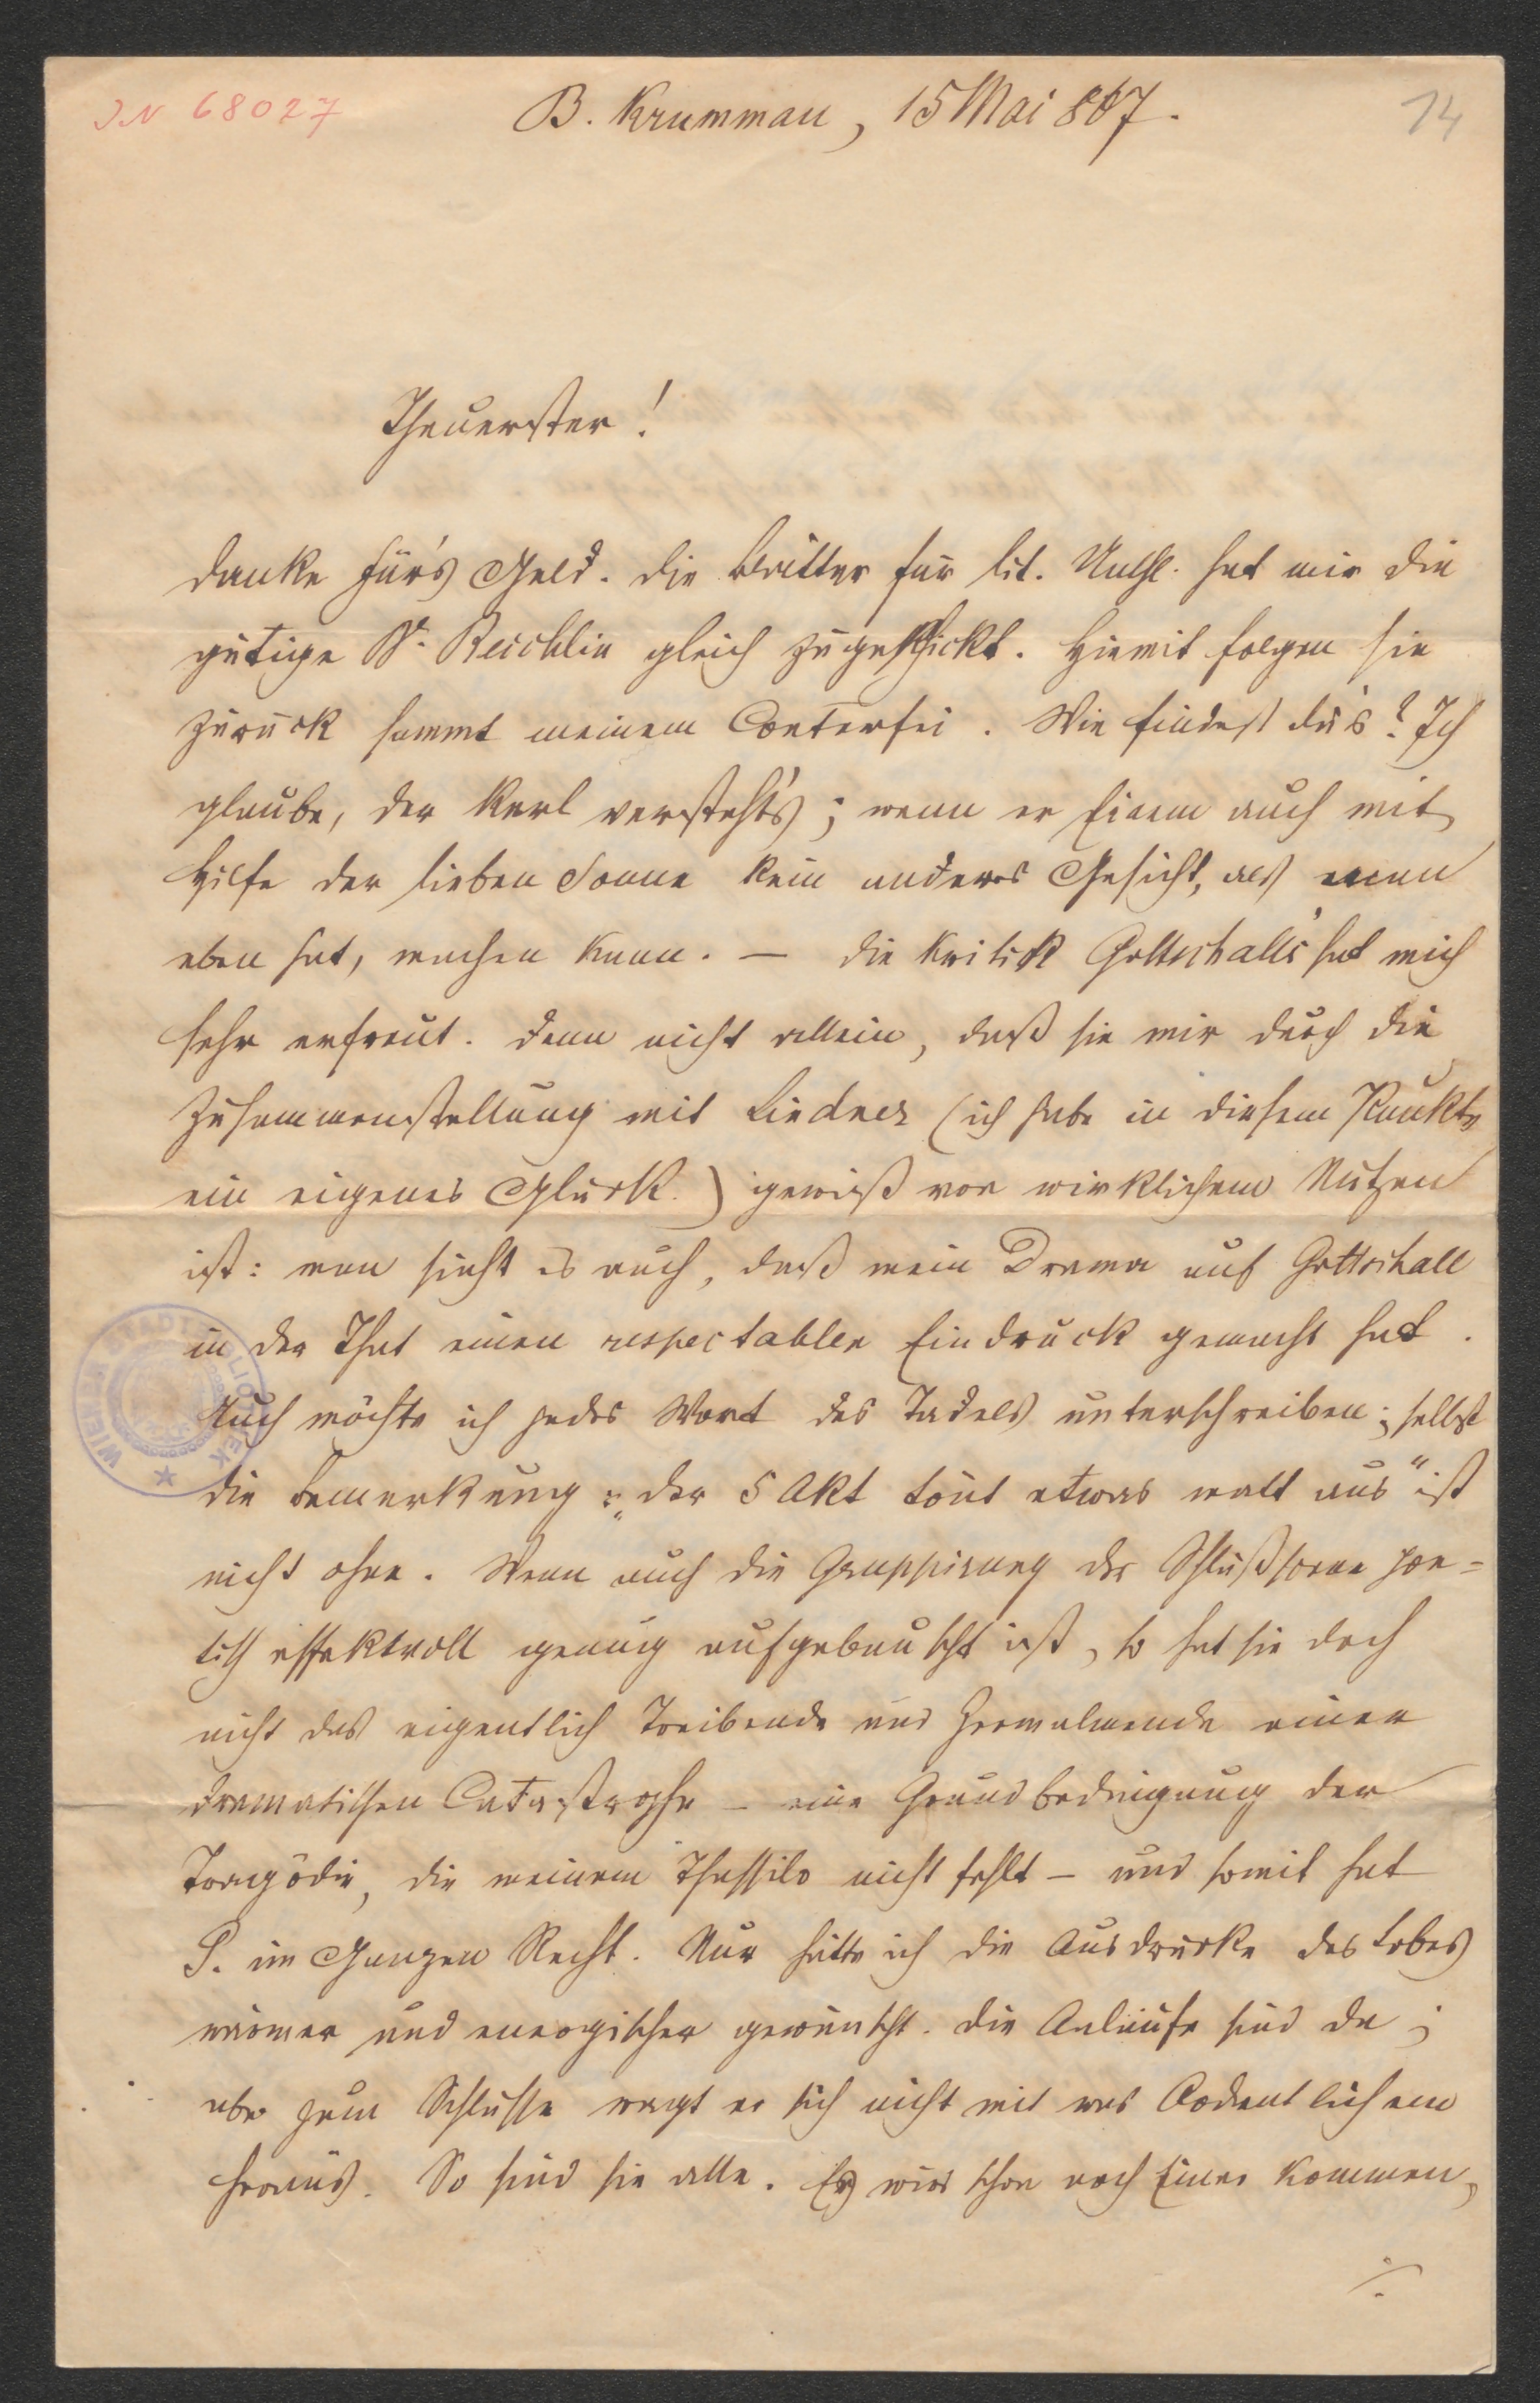 IN 68027
B. Krummau, 15 Mai 867.
14
Theuerster!
Danke für's Geld. Die Blätter für lit. Unth. hat mir die
gütige Fr. Reichlin gleich zugeschickt. Hiemit folgen sie
zurück sammt meinem Conterfei. Wie findest du's? Ich
glaube, der Kerl versteht's; wenn er Einem auch mit
Hilfe der lieben Sonne kein anderes Gesicht, als man
eben hat, machen kann. – Die Kritik Gottschall's hat mich
sehr erfreut. Denn nicht allein, daß sie mir durch die
Zusammenstellung mit Lindner (ich habe in diesem Punkte
ein eigenes Glück.) gewiß von wirklichem Nutzen
ist: man sieht es auch, daß mein Drama auf Gottschall
in der That einen respectablen Eindruck gemacht hat.
Auch möchte ich jedes Wort des Tadels unterschreiben; selbst
die Bemerkung: „der 5 Akt tönt etwas matt aus" ist
nicht ohne. Wenn auch die Gruppirung der Schlußscene poe=
tisch effektvoll genug aufgebauscht ist, so hat sie doch
nicht das eigentlich Treibende und Zermalmende einer
dramatischen Catastrophe – eine Grundbedingung der
Tragödie, die meinem Thassilo nicht fehlt – und somit hat
G. im Ganzen Recht. Nur hätte ich die Ausdrücke des Lobes
wärmer und energischer gewünscht. Die Anläufe sind da;
aber zum Schlusse wagt er sich nicht mit was Ordentlichem
heraus. So sind sie alle. Es wird schon noch Einer kommen,
./.
WIENER STADTBIBLIOTHEK